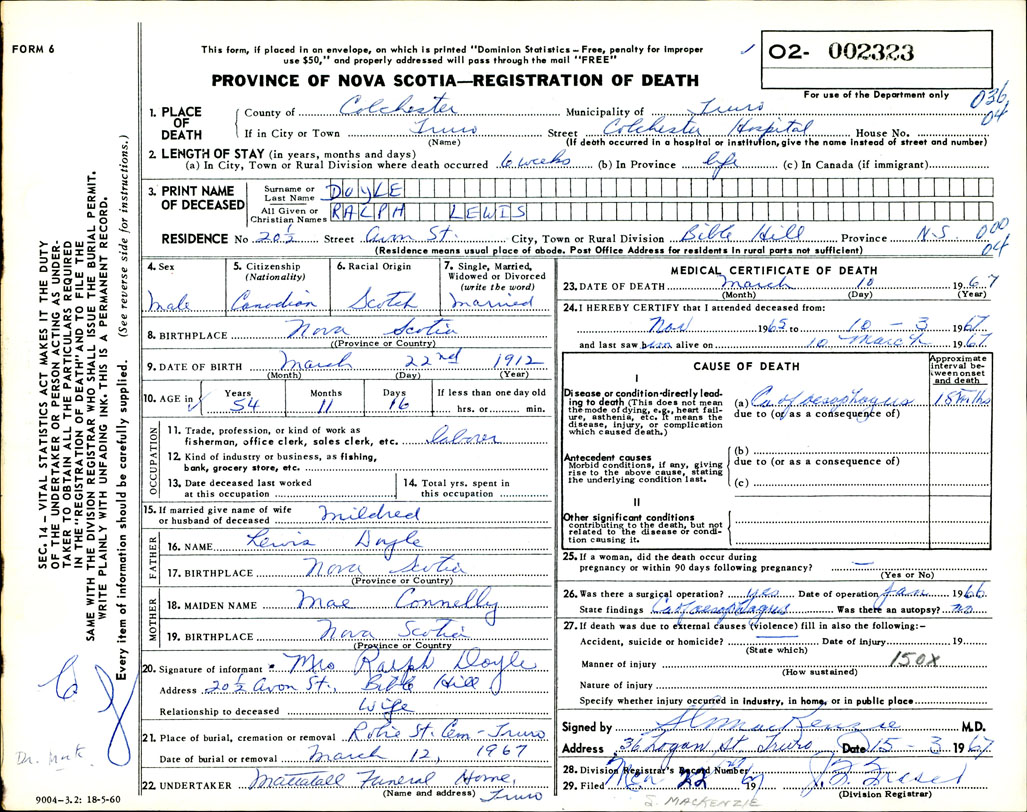 FORM 6
This form, if placed in an envelope, on which is printed "Dominion Statistics – Free, penalty for improper
use $50," and properly addressed will pass through the mail "FREE"
PROVINCE OF NOVA SCOTIA—REGISTRATION OF DEATH
O2- 002323
For use of the Department only
036
04
1. PLACE OF DEATH
County of Colchester Municipality of Truro
If in City or Town Truro Street Colchester Hospital House No.
(Name) (If death occurred in a hospital or institution, give the name instead of street and number)
2. LENGTH OF STAY (in years, months and days)
(a) In City, Town or Rural Division where death occurred 6 weeks (b) In Province life (c) In Canada (if immigrant)
3. PRINT NAME OF DECEASED
Surname or Last Name DOYLE
All Given or Christian Names RALPH LEWIS
RESIDENCE No 20½ Street Avon St. City, Town or Rural Division Bible Hill Province N.S.
000
04
(Residence means usual place of abode. Post Office Address for residents in rural parts not sufficient)
4. Sex Male
5. Citizenship (Nationality) Canadian
6. Racial Origin Scotch
7. Single, Married, Widowed or Divorced (write the word) Married
8. BIRTHPLACE Nova Scotia
(Province or Country)
9. DATE OF BIRTH March 22nd 1912
(Month) (Day) (Year)
10. AGE in Years 54 Months 11 Days 16 If less than one day old hrs. or min.
OCCUPATION
11. Trade, profession, or kind of work as
fisherman, office clerk, sales clerk, etc. laborer
12. Kind of industry or business, as fishing,
bank, grocery store, etc.
13. Date deceased last worked
at this occupation
14. Total yrs. spent in
this occupation
15. If married give name of wife
or husband of deceased Mildred
FATHER
16. NAME Lewis Doyle
17. BIRTHPLACE Nova Scotia
(Province or Country)
MOTHER
18. MAIDEN NAME Mae Connelly
19. BIRTHPLACE Nova Scotia
(Province or Country)
20. Signature of informant Mrs Ralph Doyle
Address 20½ Avon St. Bible Hill
Relationship to deceased Wife
21. Place of burial, cremation or removal Robie St. Cem - Truro
Date of burial or removal March 12, 1967
22. UNDERTAKER Mattatall Funeral Home,
(Name and address) Truro
MEDICAL CERTIFICATE OF DEATH
23. DATE OF DEATH March 10 1967
(Month) (Day) (Year)
24. I HEREBY CERTIFY that I attended deceased from:
Nov 1965 to 10 - 3 1967
and last saw him alive on 10 March 1967
CAUSE OF DEATH
Approximate interval between onset and death
I
Disease or condition directly leading to death (This does not mean the mode of dying, e.g., heart failure, asthenia, etc. It means the disease, injury, or complication which caused death.)
(a) Ca of oesophagus 18 mths
due to (or as a consequence of)
Antecedent causes
Morbid conditions, if any, giving rise to the above cause, stating the underlying condition last.
(b)
due to (or as a consequence of)
(c)
II
Other significant conditions
contributing to the death, but not related to the disease or condition causing it.
25. If a woman, did the death occur during
pregnancy or within 90 days following pregnancy? —
(Yes or No)
26. Was there a surgical operation? yes Date of operation Jan 1966
State findings Ca of oesophagus Was there an autopsy? no
27. If death was due to external causes (violence) fill in also the following:–
Accident, suicide or homicide? Date of injury 19
(State which)
Manner of injury 150X
(How sustained)
Nature of injury
Specify whether injury occurred in industry, in home, or in public place
Signed by MacKenzie M.D.
Address 36 Logan St Truro Date 15 - 3 1967
28. Division Registrar's Record Number
29. Filed 22 67 Fraser
(Division Registrar)
MACKENZIE
SEC. 14 – VITAL STATISTICS ACT MAKES IT THE DUTY
OF THE UNDERTAKER OR PERSON ACTING AS UNDERTAKER
TO OBTAIN ALL THE PARTICULARS REQUIRED
IN THE "REGISTRATION OF DEATH" AND TO FILE THE
SAME WITH THE DIVISION REGISTRAR WHO SHALL ISSUE THE BURIAL PERMIT.
WRITE PLAINLY WITH UNFADING INK. THIS IS A PERMANENT RECORD.
Every item of information should be carefully supplied. (See reverse side for instructions.)
9004-3.2: 18-5-60